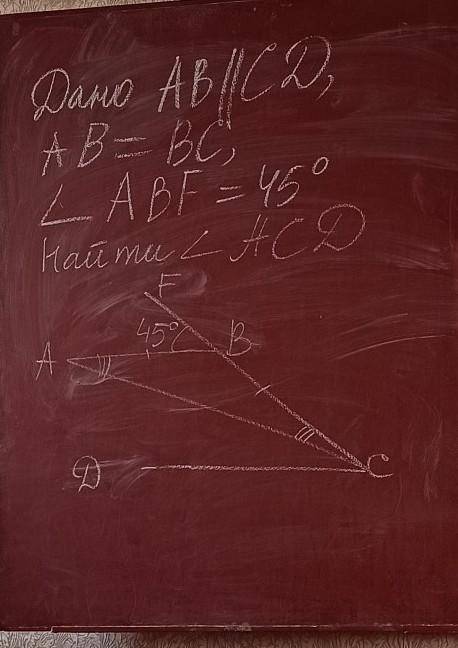 Дано AB||CD,
AB = BC,
∠ ABF = 45°
Найти ∠ ACD
F
45°
A
B
D
C